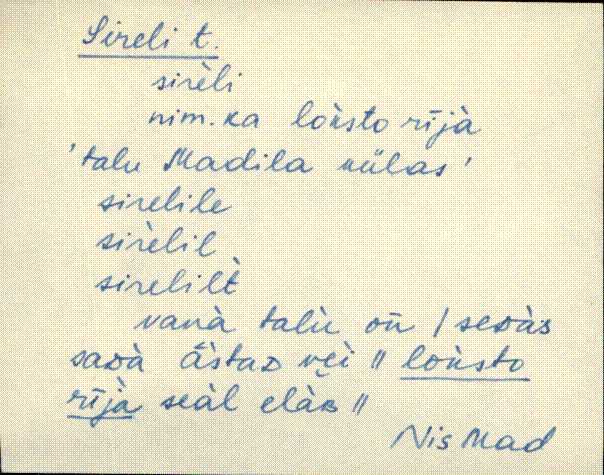 Sireli t.
sirèli
nim. ka loùsto rījà
'talu Madila külas'
sirelile
sirèlil
sirelilt̀
vanà talù oñ / seᴅàʙ
saᴅà āstaᴅ vèi // loùsto
rījà seàl elàʙ //
Nis Mad